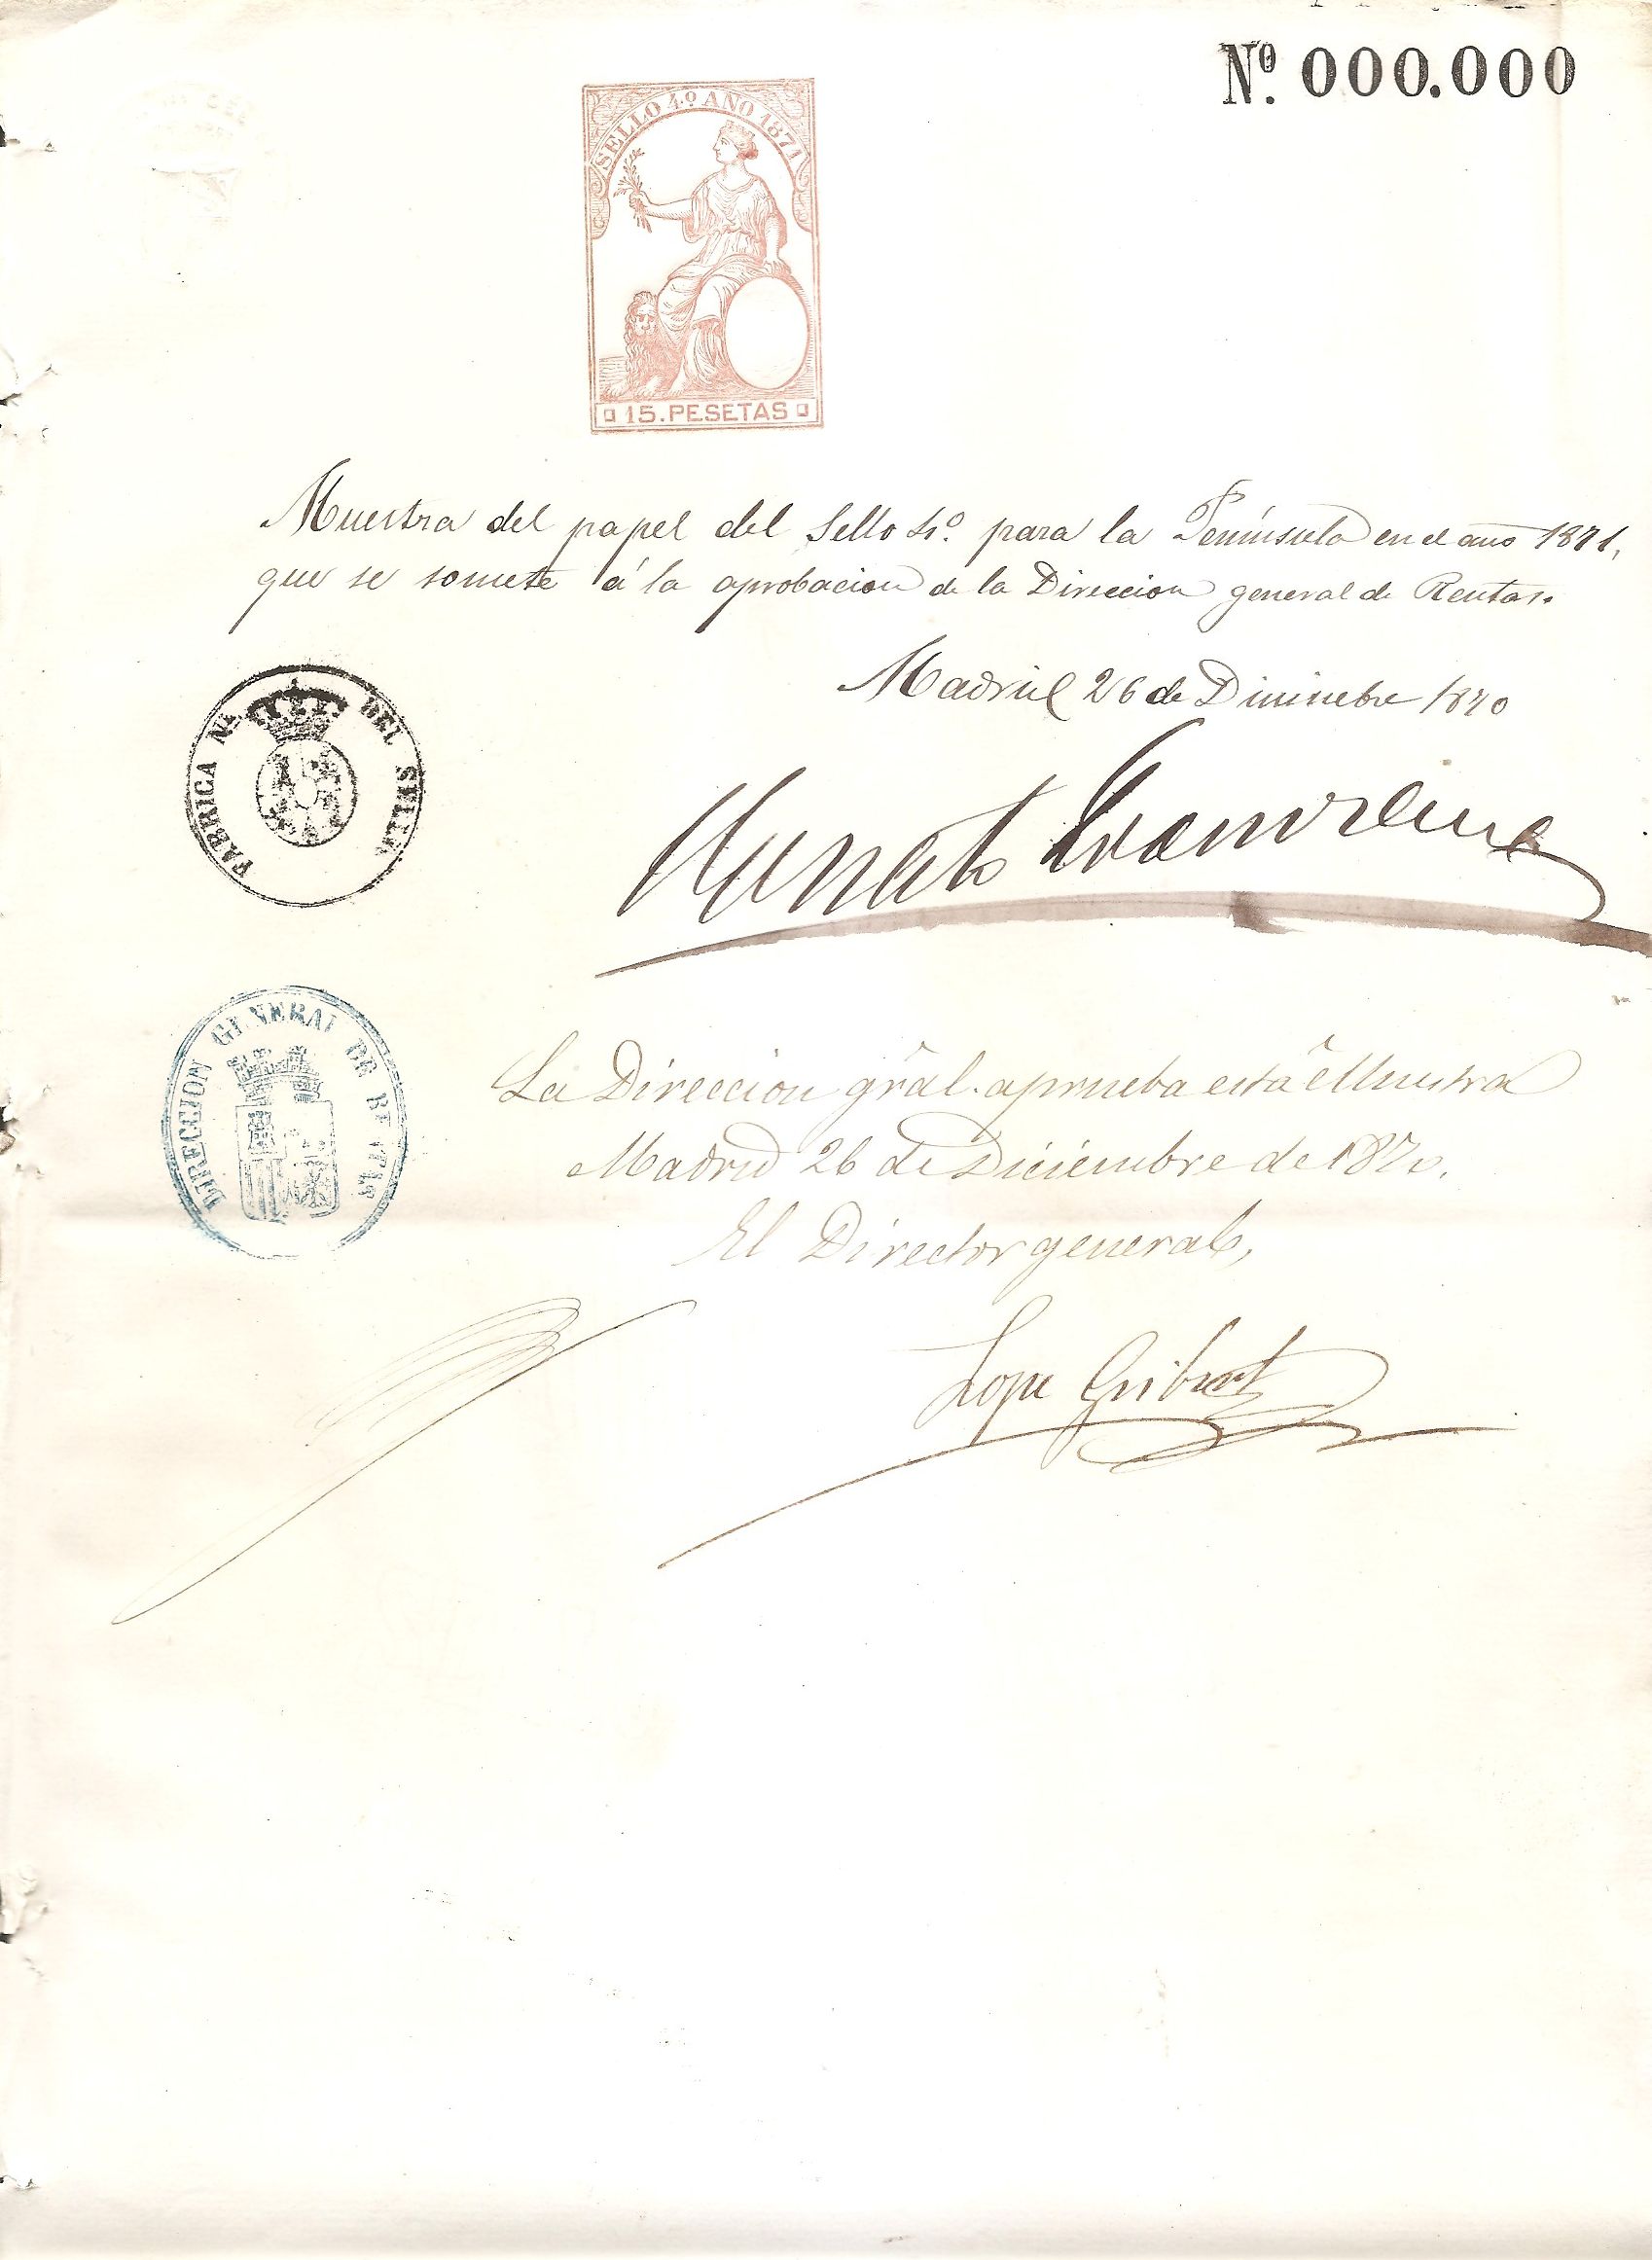 Nº. 000.000
SELLO 4.º AÑO 1871
15. PESETAS
Muestra del papel del Sello 4º. para la Península en el año 1871,
que se somete á la aprobacion de la Direccion general de Rentas.
Madrid 26 de Diciembre 1870
FABRICA NL. DEL SELLO
DIRECCION GENERAL DE RENTAS
La Direccion gral. aprueba esta Muestra
Madrid 26 de Diciembre de 1870.
El Director general,
Lope Gisbert